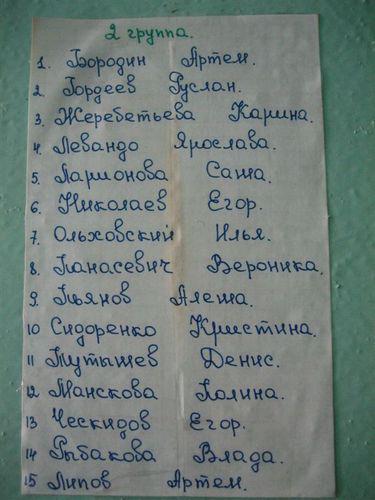 2 группа.
1. Бородин Артем.
2 Гордеев Руслан.
3 Жеребетьева Карина.
4 Левандо Ярослава.
5. Ларионова Саша.
6 Николаев Егор.
7. Ольховский Илья.
8. Панасевич Вероника.
9. Пьянов Алеша.
10 Сидоренко Кристина.
11 Тутышев Денис.
12 Манскова Полина.
13 Ческидов Егор.
14 Рыбакова Влада.
15 Липов Артем.